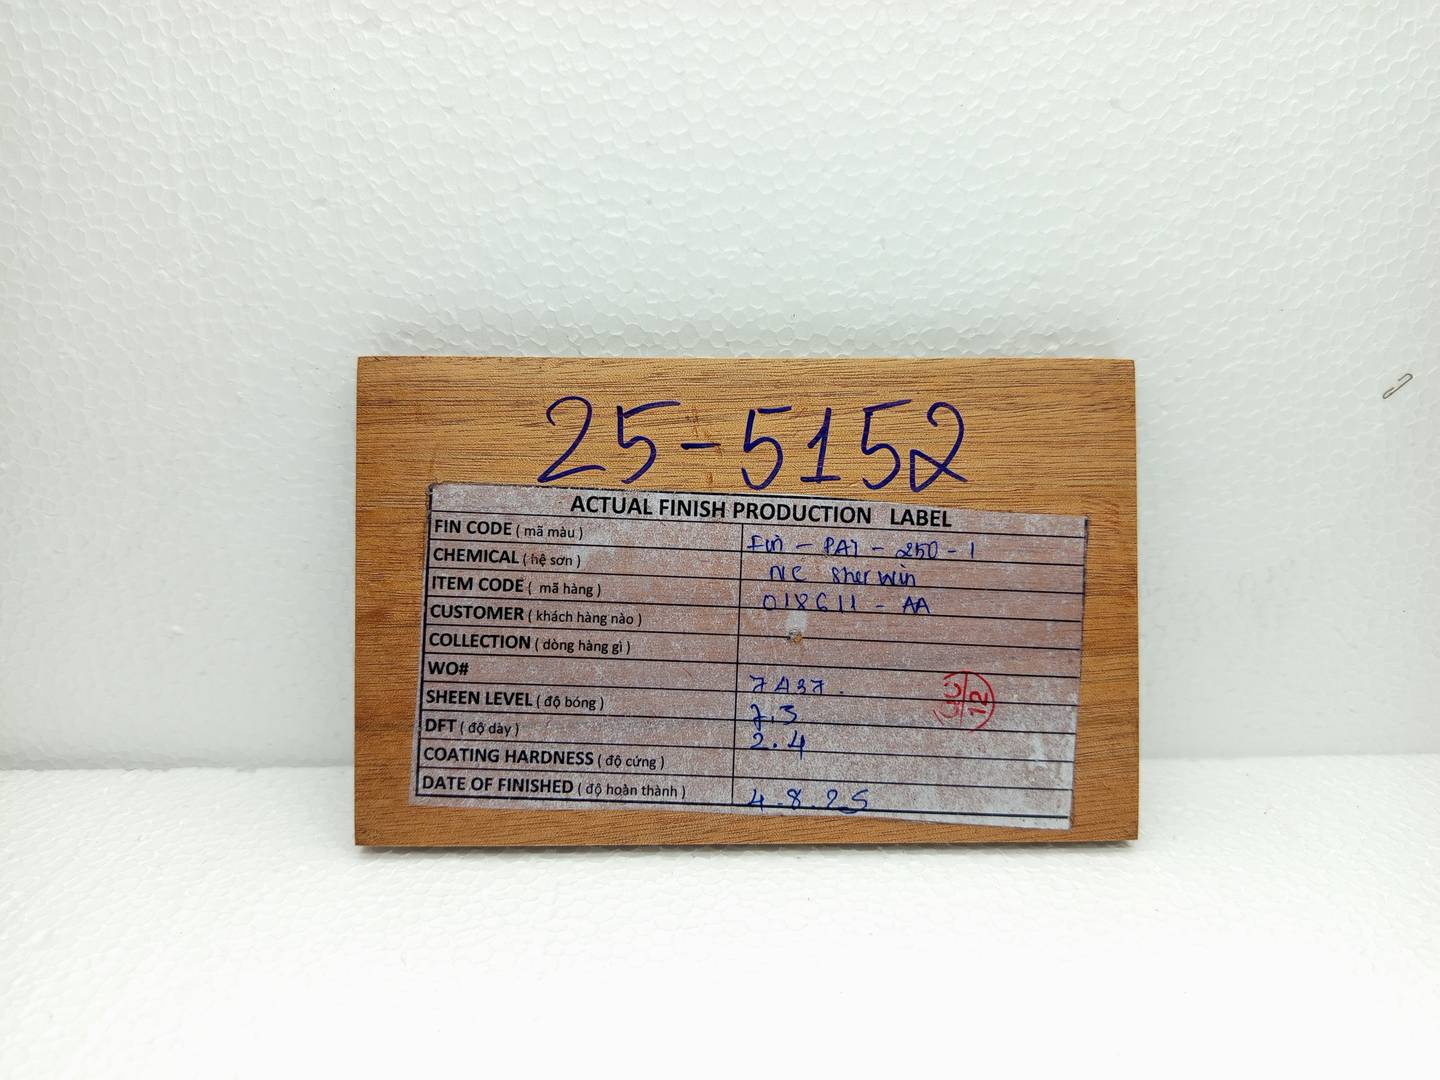 25-5152
ACTUAL FINISH PRODUCTION LABEL
FIN CODE ( mã màu ) Fin - PAT - 250 - 1
CHEMICAL ( hệ sơn ) NC Sherwin
ITEM CODE ( mã hàng ) 018611 - AA
CUSTOMER ( khách hàng nào )
COLLECTION ( dòng hàng gì )
WO# 7A37.
SHEEN LEVEL ( độ bóng ) 7.3
DFT ( độ dày ) 2.4
COATING HARDNESS ( độ cứng )
DATE OF FINISHED ( độ hoàn thành ) 4.8.25
12